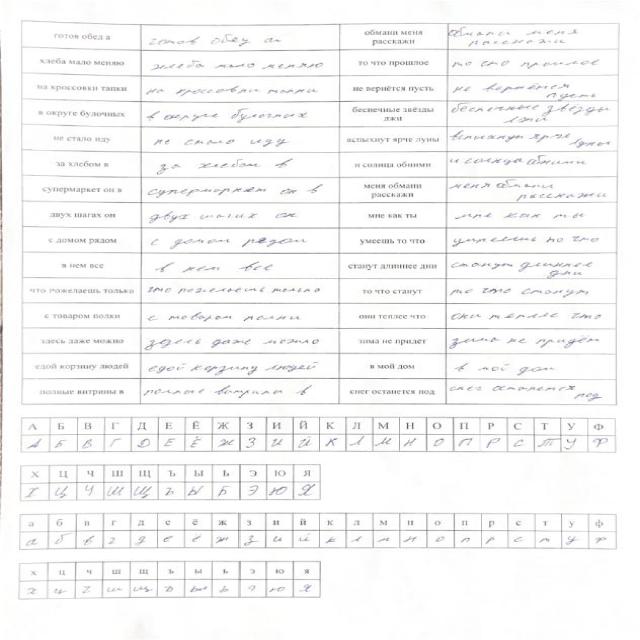 готов обед а готов обед а обмани меня обмани меня
расскажи расскажи
хлеба мало меняю хлеба мало меняю то что прошлое то что прошлое
на кроссовки тапки на кроссовки тапки не вернётся пусть не вернётся
пусть
в округе булочных в округе булочных беспечные звёзды беспечные звезды
лжи лжи
не стало иду не стало иду вспыхнут ярче луны вспыхнут ярче
луны
за хлебом в за хлебом в и солнца обними и солнца обними
супермаркет он в супермаркет он в меня обмани меня обмани
расскажи расскажи
двух шагах он двух шагах он мне как ты мне как ты
с домом рядом с домом рядом умеешь то что умеешь то что
в нем все в нем все станут длиннее дни станут длиннее
дни
что пожелаешь только что пожелаешь только то что станут то что станут
с товаром полки с товаром полки они теплее что они теплее что
здесь даже можно здесь даже можно зима не придёт зима не придёт
едой корзину людей едой корзину людей в мой дом в мой дом
полные витрины в полные витрины в снег останется под снег останется
под
А Б В Г Д Е Ё Ж З И Й К Л М Н О П Р С Т У Ф
А Б В Г Д Е Ё Ж З И Й К Л М Н О П Р С Т У Ф
Х Ц Ч Ш Щ Ъ Ы Ь Э Ю Я
Х Ц Ч Ш Щ Ъ Ы Ь Э Ю Я
а б в г д е ё ж з и й к л м н о п р с т у ф
а б в г д е ё ж з и й к л м н о п р с т у ф
х ц ч ш щ ъ ы ь э ю я
х ц ч ш щ ъ ы ь э ю я